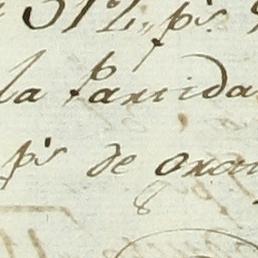 312,, p.s
la Partida
p.s de oro